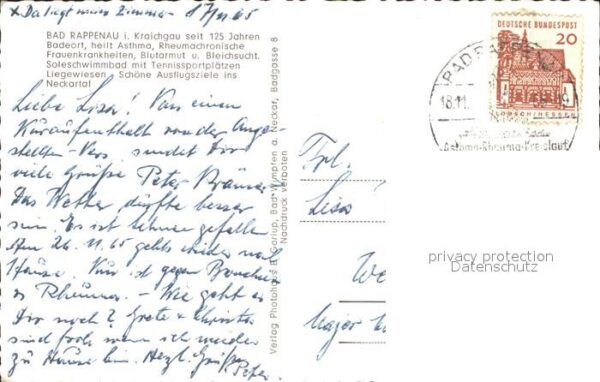 x Da liegt mein Zimmer
BAD RAPPENAU i. Kraichgau seit 125 Jahren
Badeort, heilt Asthma, Rheumachronische
Frauenkrankheiten, Blutarmut u. Bleichsucht.
Soleschwimmbad mit Tennissportplätzen
Liegewiesen Schöne Ausflugsziele ins
Neckartal
Liebe Lisa! Von einem
Kuraufenthalt von der Ange-
stellten-Vers. sendet Dir
viele Grüße Peter
Das Wetter dürfte besser
sein. Es ist schwer gefallen
Am 26.11.65 gehts wieder nach
Hause. Kur ist gegen
u. Rheuma. - Wie geht es
Dir noch? Grete & Christa
sind froh wenn ich wieder
zu Hause bin. Herzl. Grüße
Peter.
Verlag Photohaus E. Gariup, Bad Wimpfen a. Neckar, Badgasse 8
Nachdruck verboten
DEUTSCHE BUNDESPOST
20
LORSCH/HESSEN
BAD RAPPENAU
18.11.
Asthma-Rheuma-Kreislauf
Frl.
Lisa
We
Major
privacy protection
Datenschutz